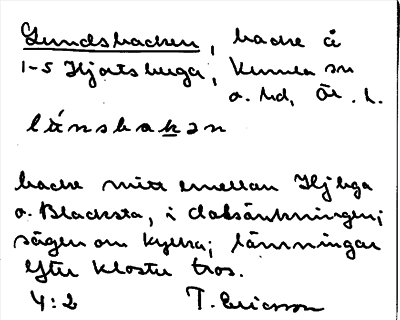 Lundsbacken, backe å
1-5 Hjortsberga, Kumla sn
o. hd, Ör. l.
länsbakən
backe mitt emellan Hjbga
o. Blacksta, i dalsänkningen;
sägen om kyrka; lämningar
efter kloster tros.
4:2 T. Ericsson